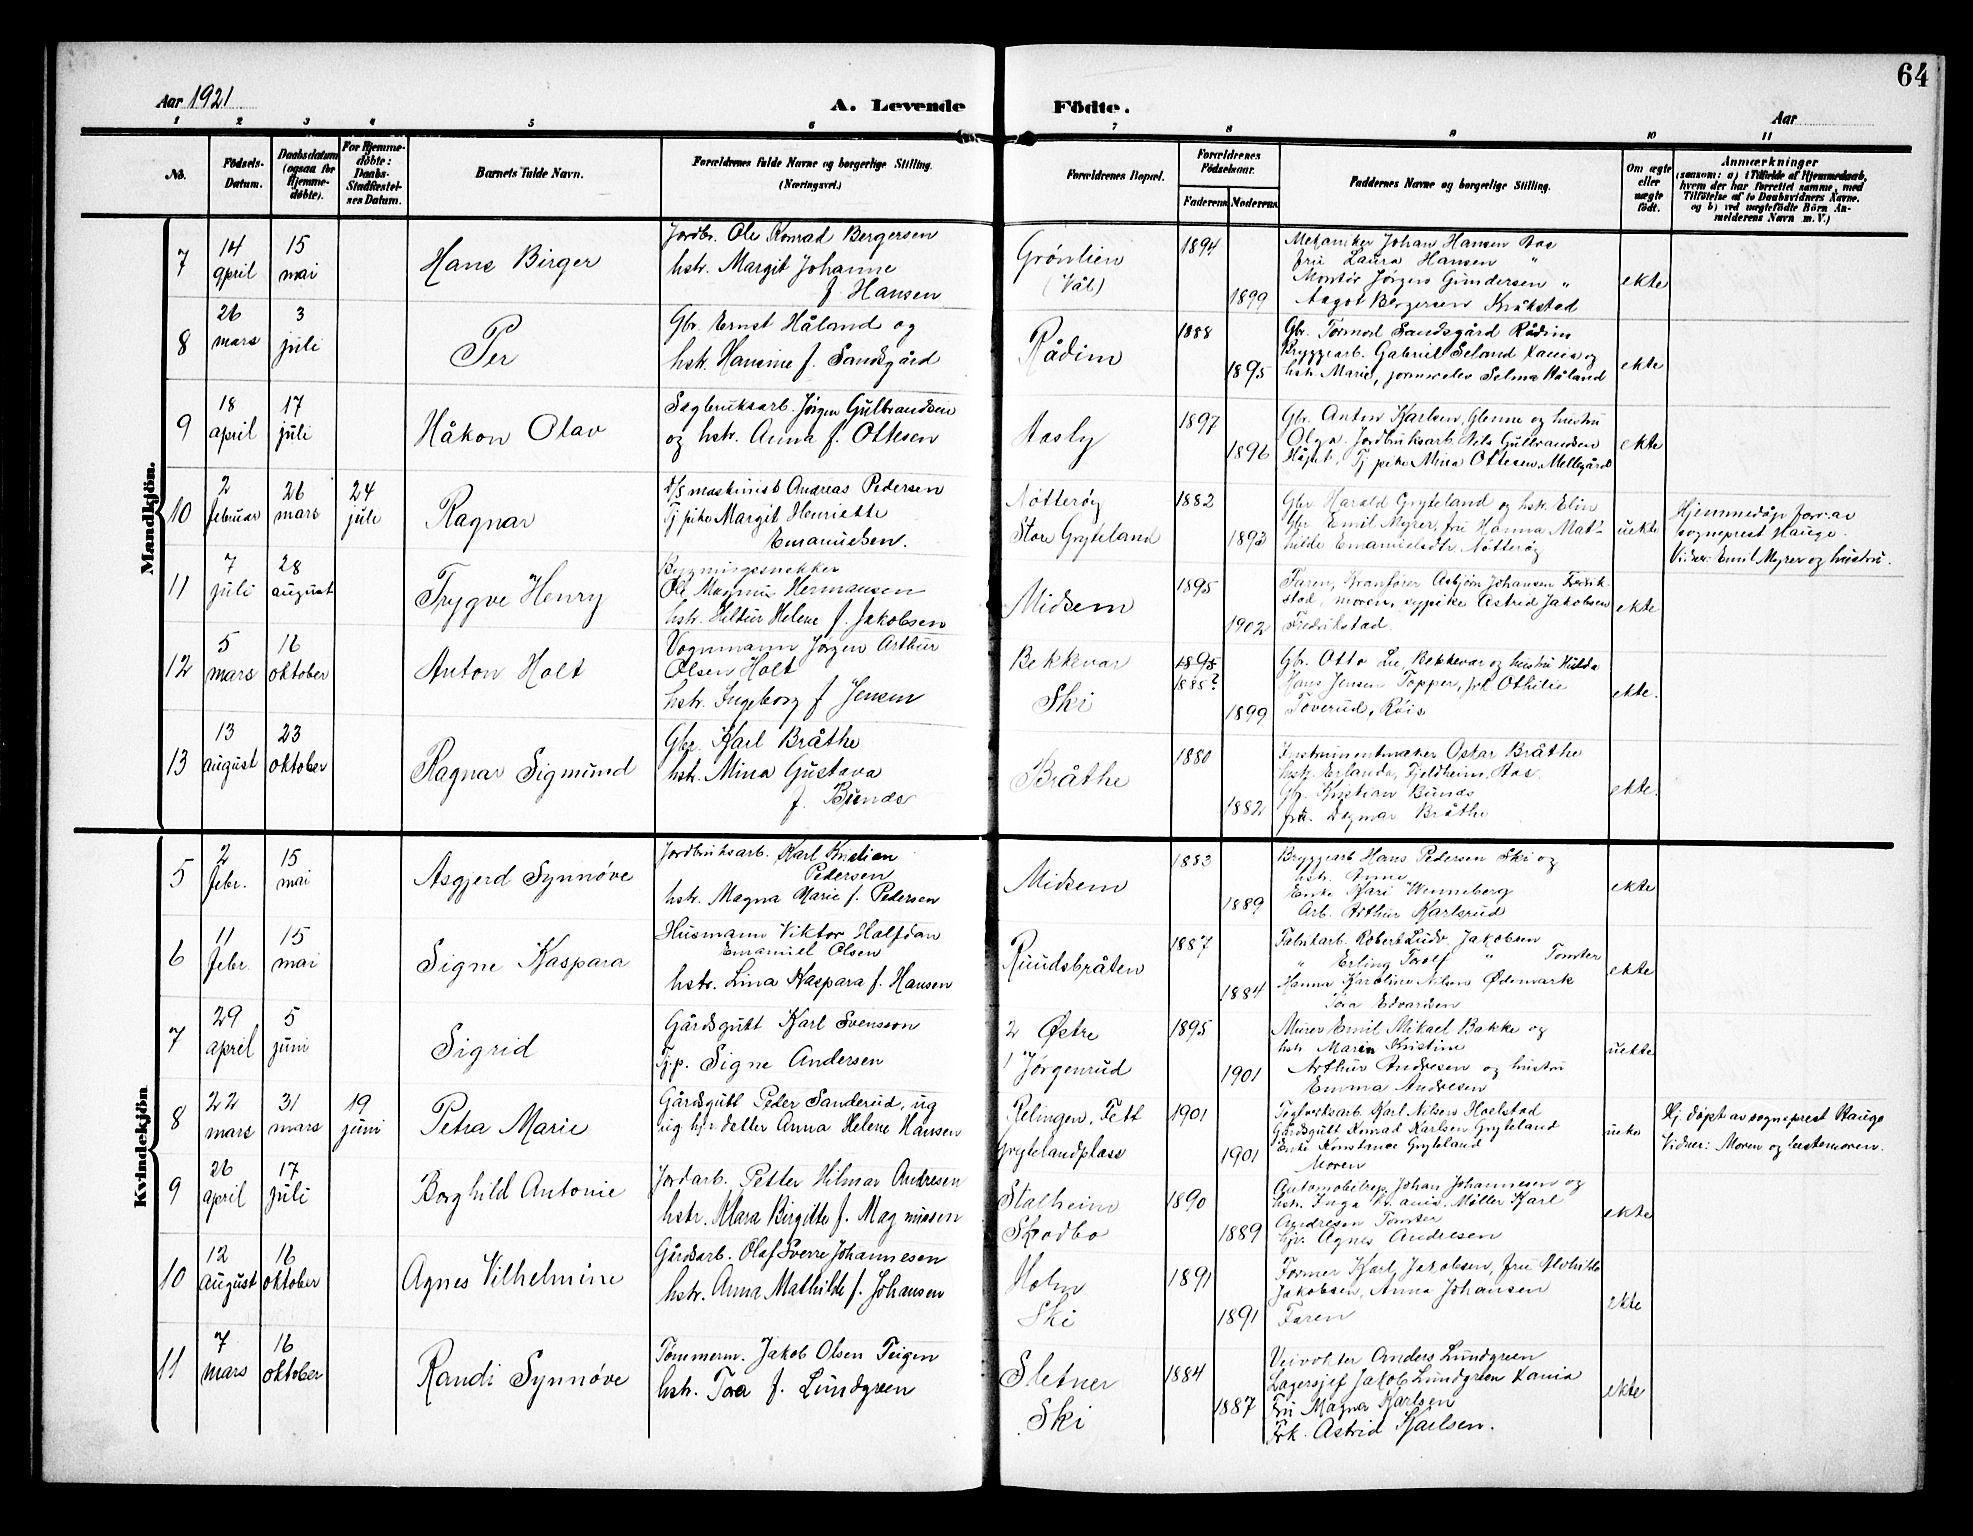 64
Aar 1921
A. Levende Födte.
Aar
1 2 3 4 5 6 7 8 9 10 11
No.
Födsels-Datum.
Daabsdatum (ogsaa for Hjemme-døbte).
For Hjemme-døbte: Daabs-Stadfæstel-ses Datum.
Barnets fulde Navn.
Forældrenes fulde Navne og borgerlige Stilling. (Næringsvei.)
Forældrenes Bopæl.
Forældrenes Födselsaar.
Faderens Moderens
Faddernes Navne og borgerlige Stilling.
Om ægte eller uægte født.
Anmærkninger
(saasom: a) i Tilfælde af Hjemmedaab,
hvem der har forrettet samme, med
Tilföielse af to Daabsvidners Navne.
og b) ved uægtefödte Börn An-
melderens Navn m. V.)
Mandkjön.
7
14 april
15 mai
Hans Birger
Jordbr. Ole Konrad Bergersen
hstr. Margit Johanne
f. Hansen
Grønlien
(Vål)
1894
1899
Mekaniker Johan Hansen Aas
fru Laura Hansen "
Montør Jørgen Gundersen "
Aagot Bergersen Kråkstad
ekte
8
26 mars
3 juli
Per
Gbr. Ernst Håland og
hstr. Hansine f. Sandsgård
Rådim
1888
1895
Gbr. Tormod Sandsgård Rådim
Bryggearb. Gabriel Seland Kania og
hstr Marie, Selma Håland
ekte
9
18 april
17 juli
Håkon Olav
Sagbruksarb. Jørgen Gulbrandsen
og hstr. Anna f. Ottesen
Aasly
1897
1896
Gbr. Anton Karlsen, Glenne og hustru
Olga. Jordbruksarb. Nils Gulbrandsen
Tj pike Mina Ottesen, Mellegård
ekte
10
2 februar
26 mars
24 juli
Ragnar
d/s maskinist Andreas Pedersen
Tj pike Margit Henriette
Emanuelsen.
Nøtterøy
Store Gryteland
1882
1893
Gbr Harald Gryteland og hstr. Elin
Gbr Emil Myrer, fru Hanna Mat-
hilde Emanuelsdtr Nøtterøy
uekte
Hjemmedøp forr. av
sogneprest Hauge.
Vidner: Emil Myrer og hustru.
11
7 juli
28 august
Trygve Henry
Bygningssnekker
Ole Magnus Hermansen
hstr. Hildur Helene f. Jakobsen
Midsem
1895
1902
Faren, Kranfører Asbjørn Johansen Fredrik-
stad, moren, sypike Astrid Jakobsen
Fredrikstad.
ekte
12
5 mars
16 oktober
Anton Holt
Vognmann Jørgen Arthur
Olsen Holt
hstr. Ingeborg f Jensen
Bekkevar
Ski
1895
1885?
1899
Gbr. Otto Lie, Bekkevar og hustru Hilda
Hans Jensen Topper, frk Othilie
Toverud, Røis
ekte.
13
13 august
23 oktober
Ragnar Sigmund
Gbr. Karl Bråthe
hstr. Mina Gustava
f. Bunds
Bråthe
1880
1882
Instrumentmaker Oskar Bråthe
hstr. Erlanda, Fjeldheim, Aas
Gbr. Kristian Bunds
frk. Dagmar Bråthe
ekte.
Kvindekjön
5
2 febr.
15 mai
Asgjerd Synnøve
Jordbruksarb. Karl Kristian
Pedersen
hstr. Magna Marie f. Pedersen
Midsem
1883
1889
Bryggearb Hans Pedersen Ski og
hstr. Anna
Enke Kari Wenneberg
Arb. Arthur Karlsrud
ekte
6
11 febr.
15 mai
Signe Kaspara
Husmann Viktor Halfdan
Emanuel Olsen
hstr. Lina Kaspara f. Hansen
Ruudsbråten
1887
1884
Fabrikarb. Robert Ludv. Jakobsen
" Erling Torolf " Tomter
Hanna Karoline Nilsen Ødemark
Tora Edvardsen
ekte
7
29 april
5 juni
Sigrid
Gårdsgutt Karl Svensson
Tj.p. Signe Andersen
2 Østre
1 Jørgenrud
1895
1901
Murer Emil Mikael Bakke og
hstr Maren Kristine
Arthur Andresen og hustru
Emma Andresen
uekte
8
22 mars
31 mars
19 juni
Petra Marie
Gårdsgutt Peder Sanderud, ug
ug hj.v.datter Anna Helene Hansen
Rælingen, Fett
Grytelandplass
1901
1901
Teglverksarb Karl Nilsen Haelstad
Gårdsgutt Konrad Karlsen Gryteland
Enke Konstance Gryteland
Moren
Hj. døpt av sogneprest Hauge
Vidner: Moren og bestemoren.
9
26 april
17 juli
Borghild Antonie
Jordarb. Petter Hilmar Andresen
hstr. Klara Birgitte f. Magnussen
Stalheim
Skodbo
1890
1889
Automobilrep. Johan Johannesen og
hstr. Inga Kr.ania. Møller Karl
Andresen Tomter
Agnes Andresen
ekte
10
12 august
16 oktober
Agnes Vilhelmine
Gårdsarb. Olaf Sverre Johannesen
hstr. Anna Mathilde f. Johansen
Holm
Ski
1891
1891
Former Karl Jakobsen, fru Alvhilde
Jakobsen, Anna Johansen
Faren
ekte
11
7 mars
16 oktober
Randi Synnøve
Tømmerm. Jakob Olsen Teigen
hstr. Tora f. Lundgreen
Sletner
Ski
1884
1887
Veivokter Anders Lundgreen
Lagersjef Jakob Lundgreen Kania
Fru Magna Karlsen
Frk. Astrid Karlsen.
ekte